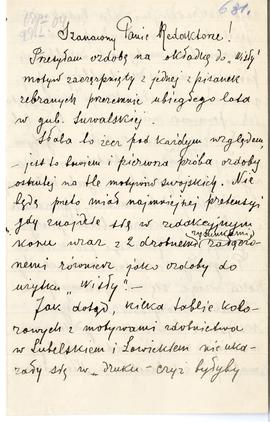 681.
Szanowny Panie Redaktorze!
Przesyłam ozdobę na okładkę do „Wisły”
motyw zaczerpnięty z jednej z pisanek
zebranych przezemnie ubiegłego lata
w gub. Suwalskiej.
Słaba to rzecz pod każdym względem
– jest to bowiem i pierwsza próba ozdoby
osnutej na tle motywów swojskich. Nie
będę przeto miał najmniejszej pretensyi
gdy znajdzie się w redakcyjnym
rysunkami
koszu wraz z 2 drobnemi załączo-
nemi również jako ozdoby do
użytku „Wisły”. –
Jak dotąd, kilka tablic kolo-
rowych z motywami zdobnictwa
w Lubelskiem i Łowickiem nie uka-
zały się w „druku – czyż byłyby